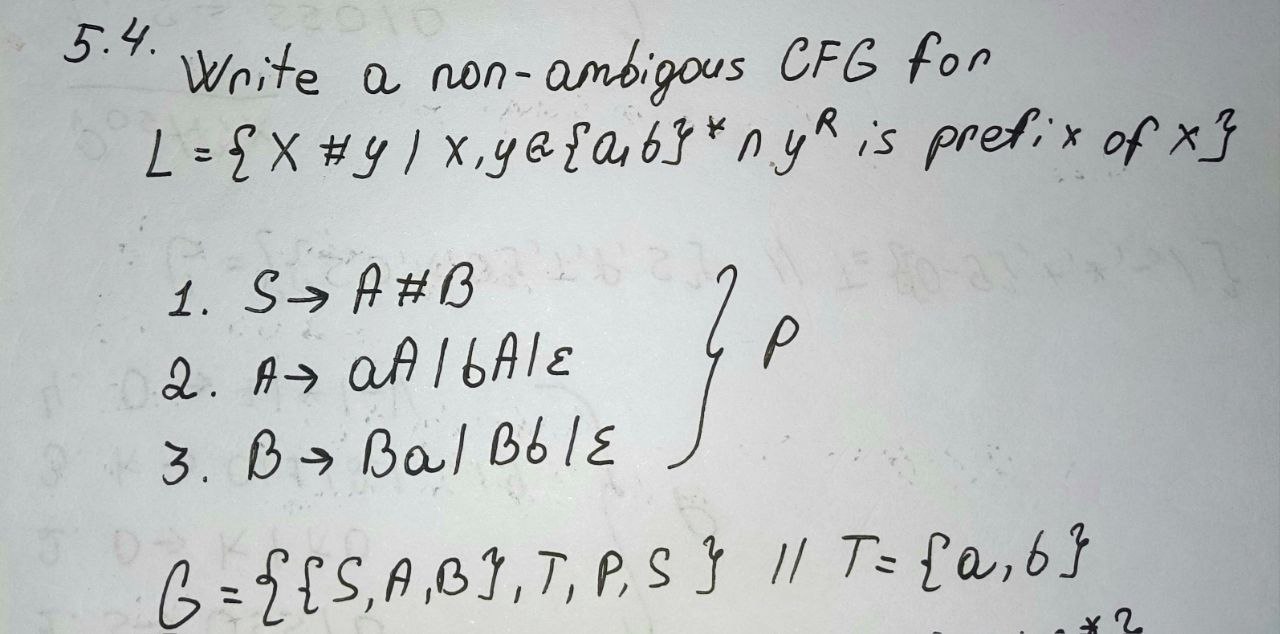 5.4.
Write a non-ambigous CFG for
L = { X # y | x, y ∈ {a, b}* ∩ y^R is prefix of x }
1. S → A # B
2. A → aA | bA | ε
3. B → Ba | Bb | ε
} P
G = {{S, A, B}, T, P, S } // T = {a, b}